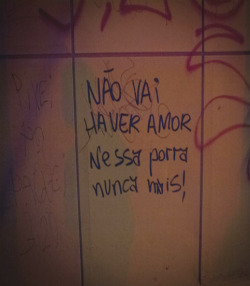 NÃO VAI
HAVER AMOR
Nessa porra
nunca mais!